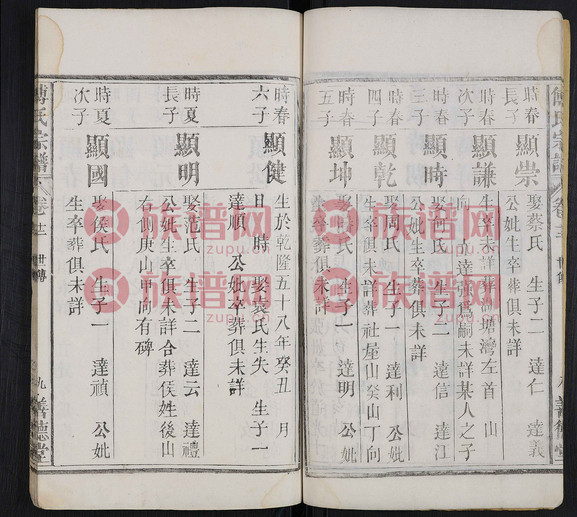 傅氏宗譜
卷十二
世傳
善德堂
時春
長子
顯崇
娶蔡氏 生子二 達仁 達義
公妣生卒葬俱未詳
時春
次子
顯謙
生卒未詳葬 塘灣左首山
向 達強爲嗣未詳某人之子
時春
三子
顯時
娶何氏 生子二 達信 達江
公妣生卒葬俱未詳
時春
四子
顯乾
娶周氏 生子一 達利 公妣
生卒俱未詳葬社壟山癸山丁向
時春
五子
顯坤
生子一 達明 公妣
生卒葬俱未詳
時春
六子
顯健
生於乾隆五十八年癸丑 月
日 時 娶袁氏生失 生子一
達順 公妣卒葬俱未詳
時夏
長子
顯明
娶范氏 生子二 達云 達禮
公妣生卒俱未詳合葬侯姓後山
右側庚山甲向有碑
時夏
次子
顯國
娶侯氏 生子一 達禎 公妣
生卒葬俱未詳
傅氏宗譜
卷十二
世傳
九
善德堂
族谱网
www.zupu.cn